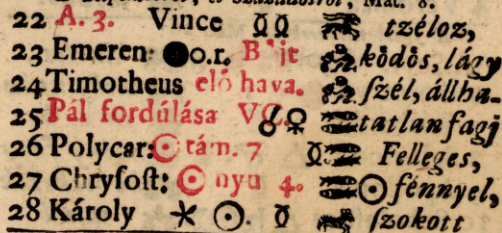 22 A. 3. Vince ☿☿ tzéloz,
23 Emeren: ●0.r. Bőjt ködös, lágy
24 Timotheus elő hava. ſzél, állha-
25 Pál fordúlása ☌♀ tatlan fagj
26 Polycar: ☉ tám. 7 ☿ Felleges,
27 Chryſoſt: ☉ nyu 4. ☉ fénnyel,
28 Károly ⚹ ☉. ☿ ſzokott